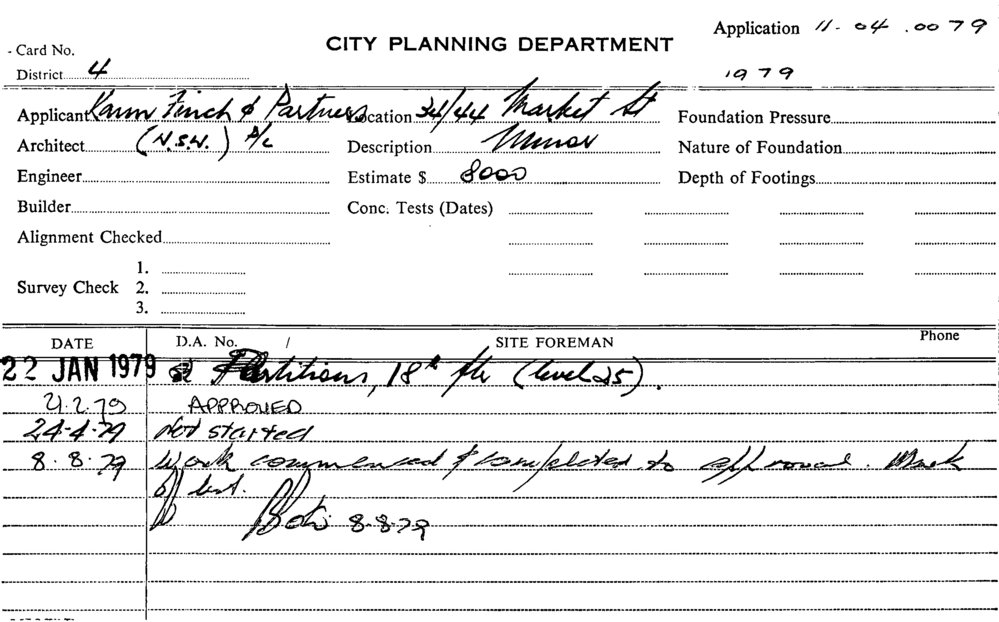 Application 11-04.0079
CITY PLANNING DEPARTMENT
- Card No.
District 4
1979
Applicant Kann Finch & Partners Location 34/44 Market St Foundation Pressure
Architect (N.S.W.) P/L Description Minor Nature of Foundation
Engineer Estimate $ 8000 Depth of Footings
Builder Conc. Tests (Dates)
Alignment Checked
1.
Survey Check 2.
3.
DATE D.A. No. / SITE FOREMAN Phone
22 JAN 1979 Partitions, 18th flr (level 25).
21.2.79 APPROVED
24-4-79 Not started
8.8.79 Work commenced & completed to approval. Mark
off list.
8-8-79